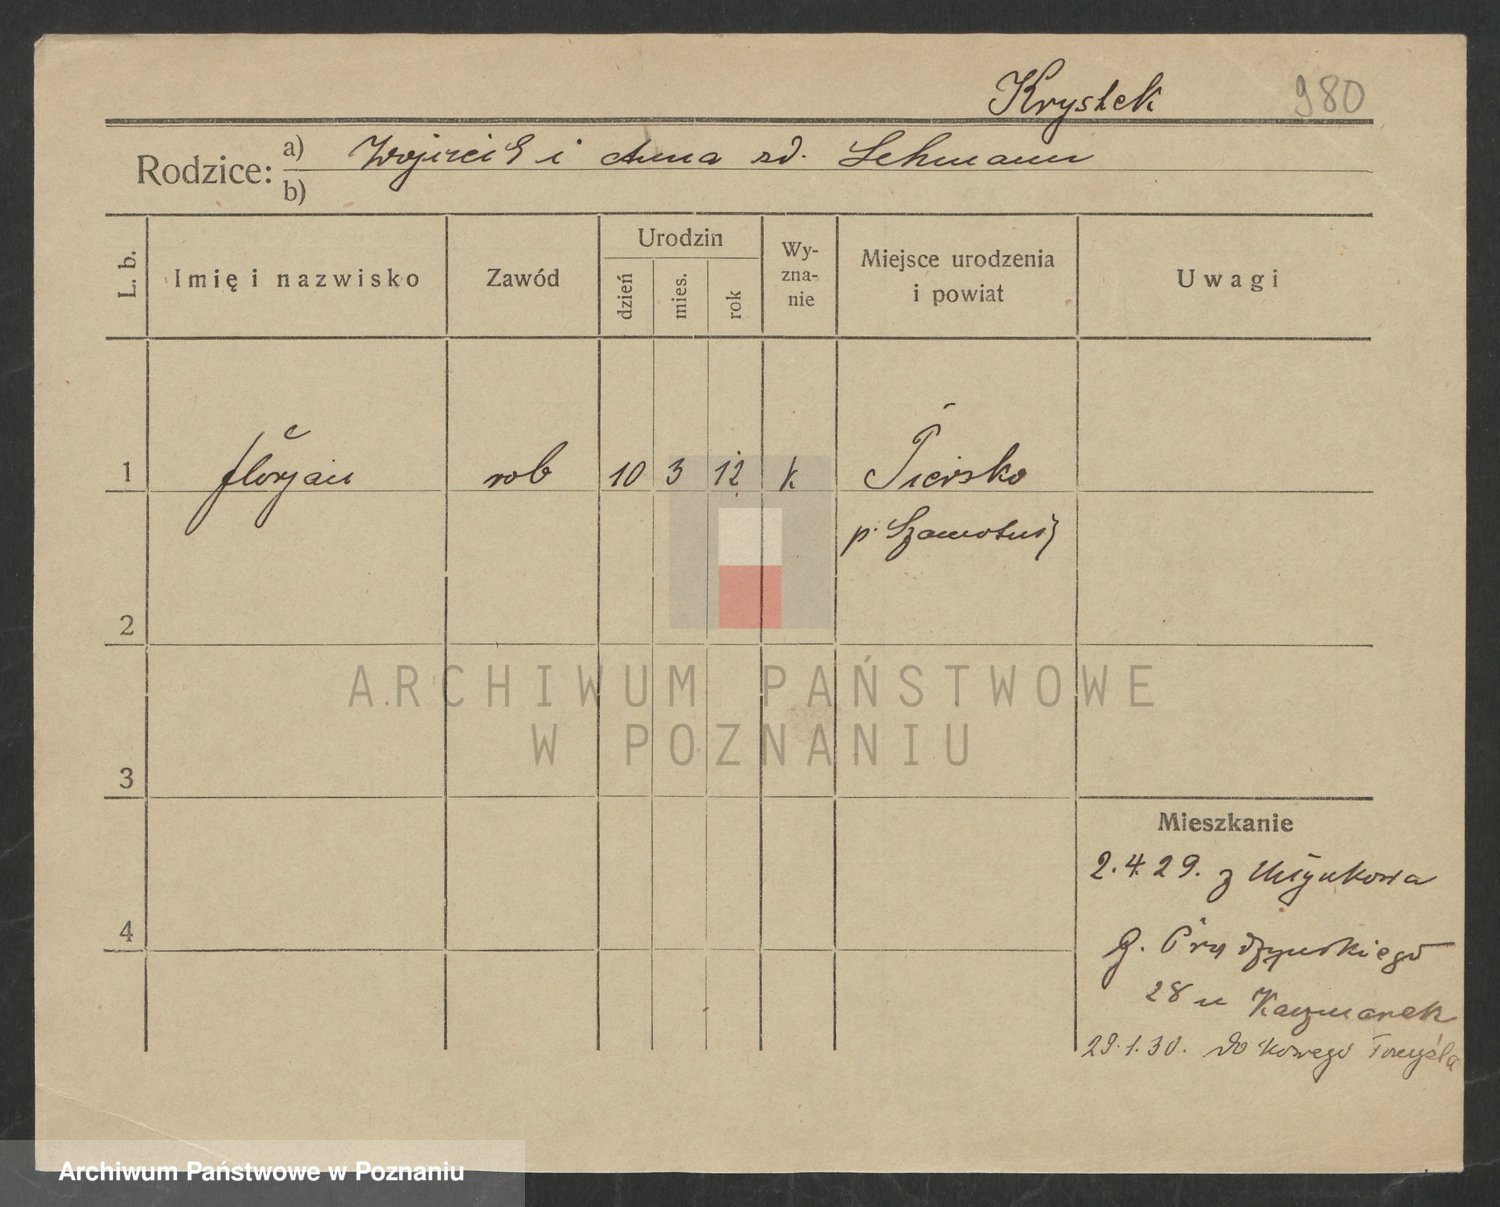 Krystek 980
Rodzice: a) Wojciech i Anna zd. Lehmann
b)
L. b. Imię i nazwisko Zawód Urodzin dzień mies. rok Wy-zna-nie Miejsce urodzenia i powiat Uwagi
1 Florjan rob 10 3 12 k Piersko
p. Szamotuły
2
3
4
Mieszkanie
2.4.29. z
G. Prądzyńskiego
28 u Kaczmarek
29.1.30. do Nowego Tomyśla
ARCHIWUM PAŃSTWOWE
W POZNANIU
Archiwum Państwowe w Poznaniu